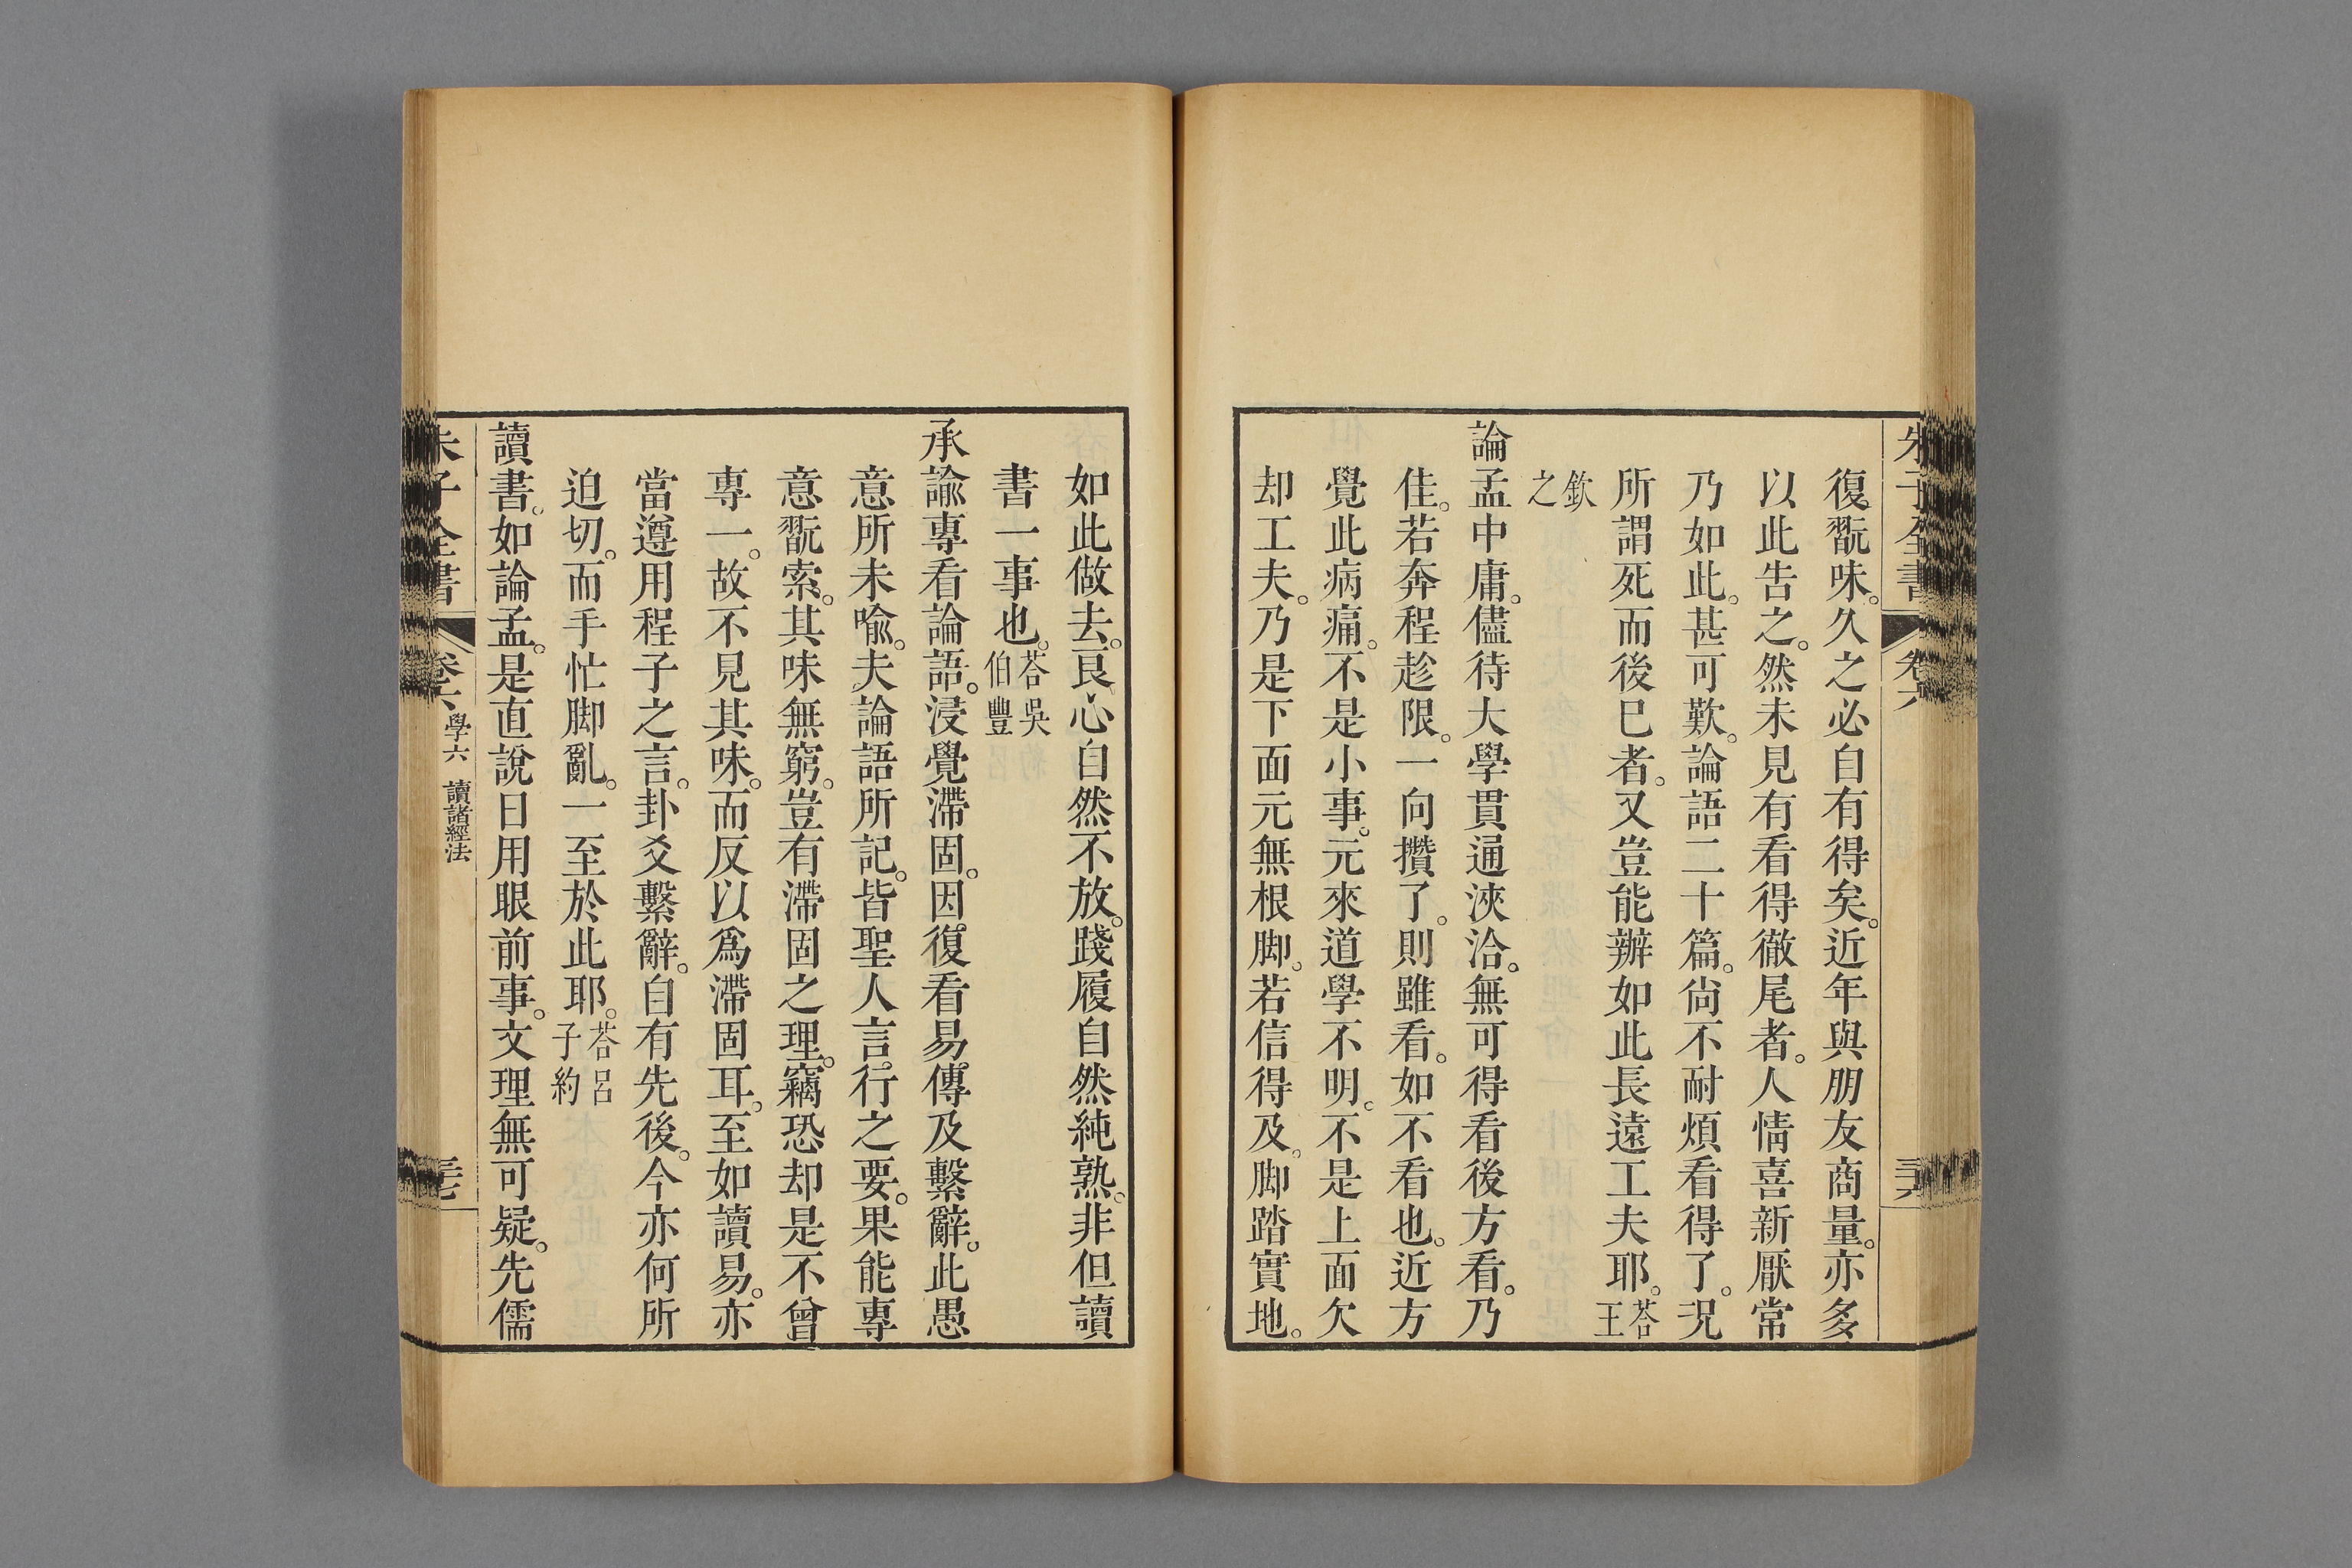 朱子全書
卷六
三六
復翫味。久之必自有得矣。近年與朋友商量。亦多
以此告之。然未見有看得徹尾者。人情喜新厭常
乃如此。甚可歎。論語二十篇。尙不耐煩看得了。况
所謂死而後已者。又豈能辦如此長遠工夫耶。荅王
欽之
論孟中庸。儘待大學貫通浹洽。無可得看後方看。乃
佳。若奔程趁限。一向攢了。則雖看。如不看也。近方
覺此病痛。不是小事。元來道學不明。不是上面欠
却工夫。乃是下面元無根脚。若信得及。脚踏實地。
如此做去。良心自然不放。踐履自然純熟。非但讀
書一事也。荅吳伯豐
承諭專看論語。浸覺滯固。因復看易傳及繫辭。此愚
意所未喩。夫論語所記。皆聖人言行之要。果能專
意翫索。其味無窮。豈有滯固之理。竊恐却是不曾
專一。故不見其味。而反以爲滯固耳。至如讀易。亦
當遵用程子之言。卦爻繫辭。自有先後。今亦何所
迫切。而手忙脚亂。一至於此耶。荅呂子約
讀書。如論孟。是直說日用眼前事。文理無可疑。先儒
朱子全書
卷六
學六 讀諸經法
三七